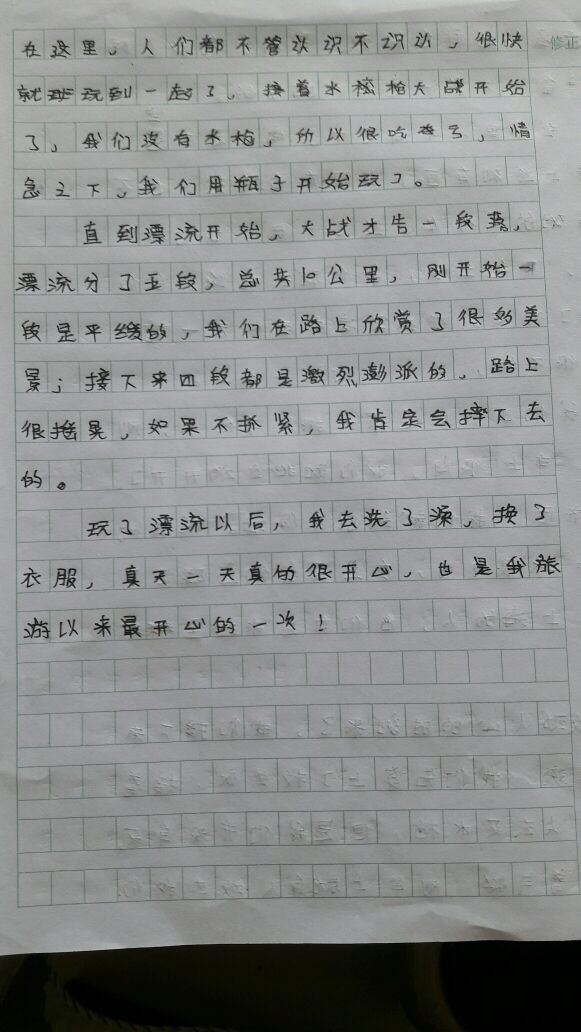 在这里，人们都不管认识不识认，很快
就玩到一起了，接着水枪大战开始
了，我们没有水枪，所以很吃亏，情
急之下，我们用瓶子开始玩了。
直到漂流开始，大战才告一段落，
漂流分了五段，总共10公里，刚开始一
段是平缓的，我们在路上欣赏了很多美
景；接下来四段都是激烈澎派的，路上
很摇晃，如果不抓紧，我肯定会摔下去
的。
玩了漂流以后，我去洗了澡，换了
衣服，真天一天真的很开心，也是我旅
游以来最开心的一次！
修正